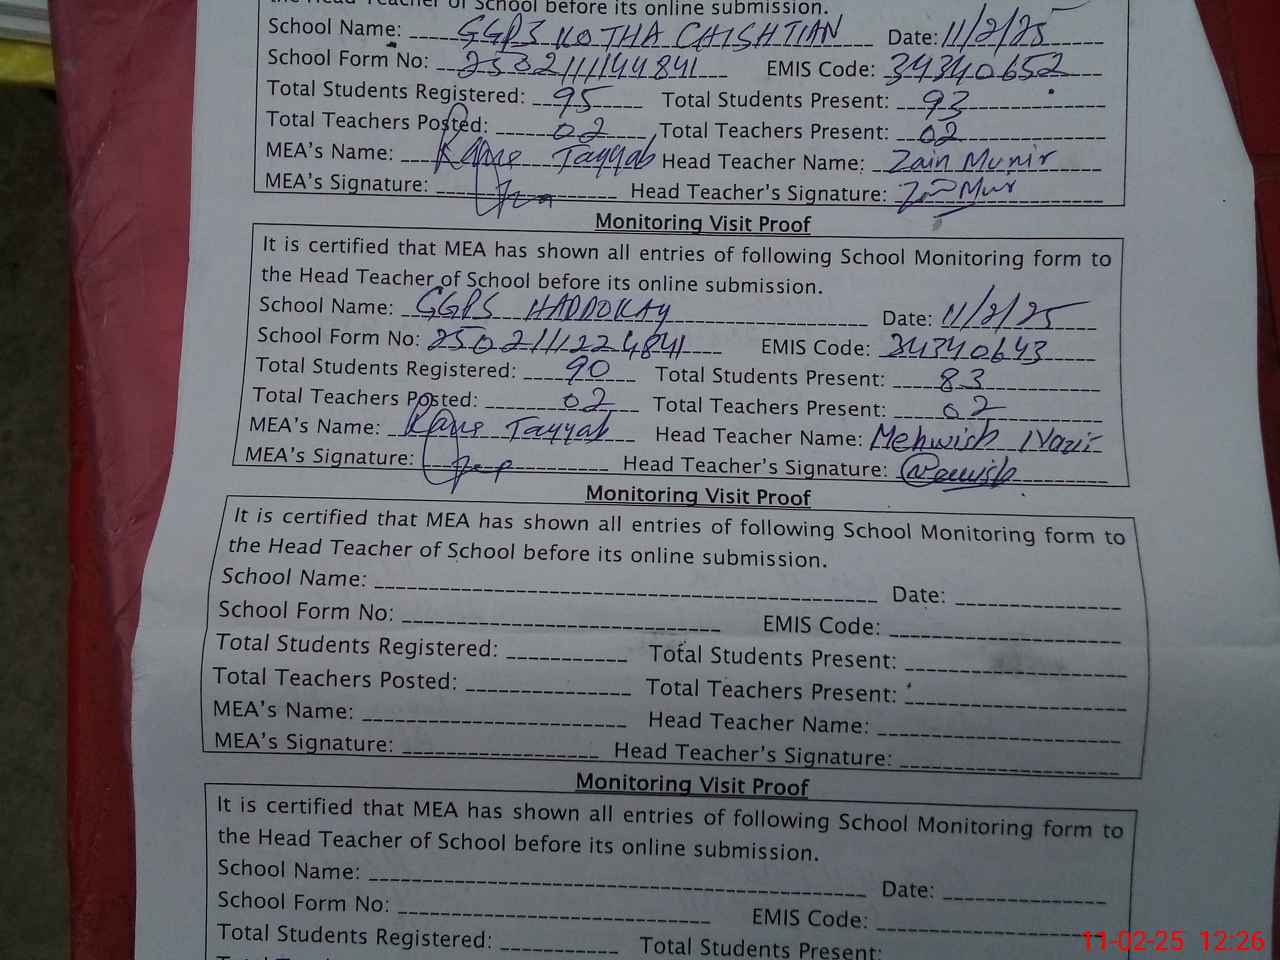 the Head Teacher of School before its online submission.
School Name: GGPS KOTHA CHISHTIAN Date: 11/2/25
School Form No: 2502111144841 EMIS Code: 34340652
Total Students Registered: 95 Total Students Present: 93
Total Teachers Posted: 02 Total Teachers Present: 02
MEA's Name: Tayyab Head Teacher Name: Zain Munir
MEA's Signature: Head Teacher's Signature:
Monitoring Visit Proof
It is certified that MEA has shown all entries of following School Monitoring form to
the Head Teacher of School before its online submission.
School Name: GGPS HADDOKAY Date: 11/2/25
School Form No: 2502111224841 EMIS Code: 34340643
Total Students Registered: 90 Total Students Present: 83
Total Teachers Posted: 02 Total Teachers Present: 02
MEA's Name: Tayyab Head Teacher Name: Mehwish Nazir
MEA's Signature: Head Teacher's Signature:
Monitoring Visit Proof
It is certified that MEA has shown all entries of following School Monitoring form to
the Head Teacher of School before its online submission.
School Name: Date:
School Form No: EMIS Code:
Total Students Registered: Total Students Present:
Total Teachers Posted: Total Teachers Present:
MEA's Name: Head Teacher Name:
MEA's Signature: Head Teacher's Signature:
Monitoring Visit Proof
It is certified that MEA has shown all entries of following School Monitoring form to
the Head Teacher of School before its online submission.
School Name: Date:
School Form No: EMIS Code:
Total Students Registered: Total Students Present:
11-02-25 12:26